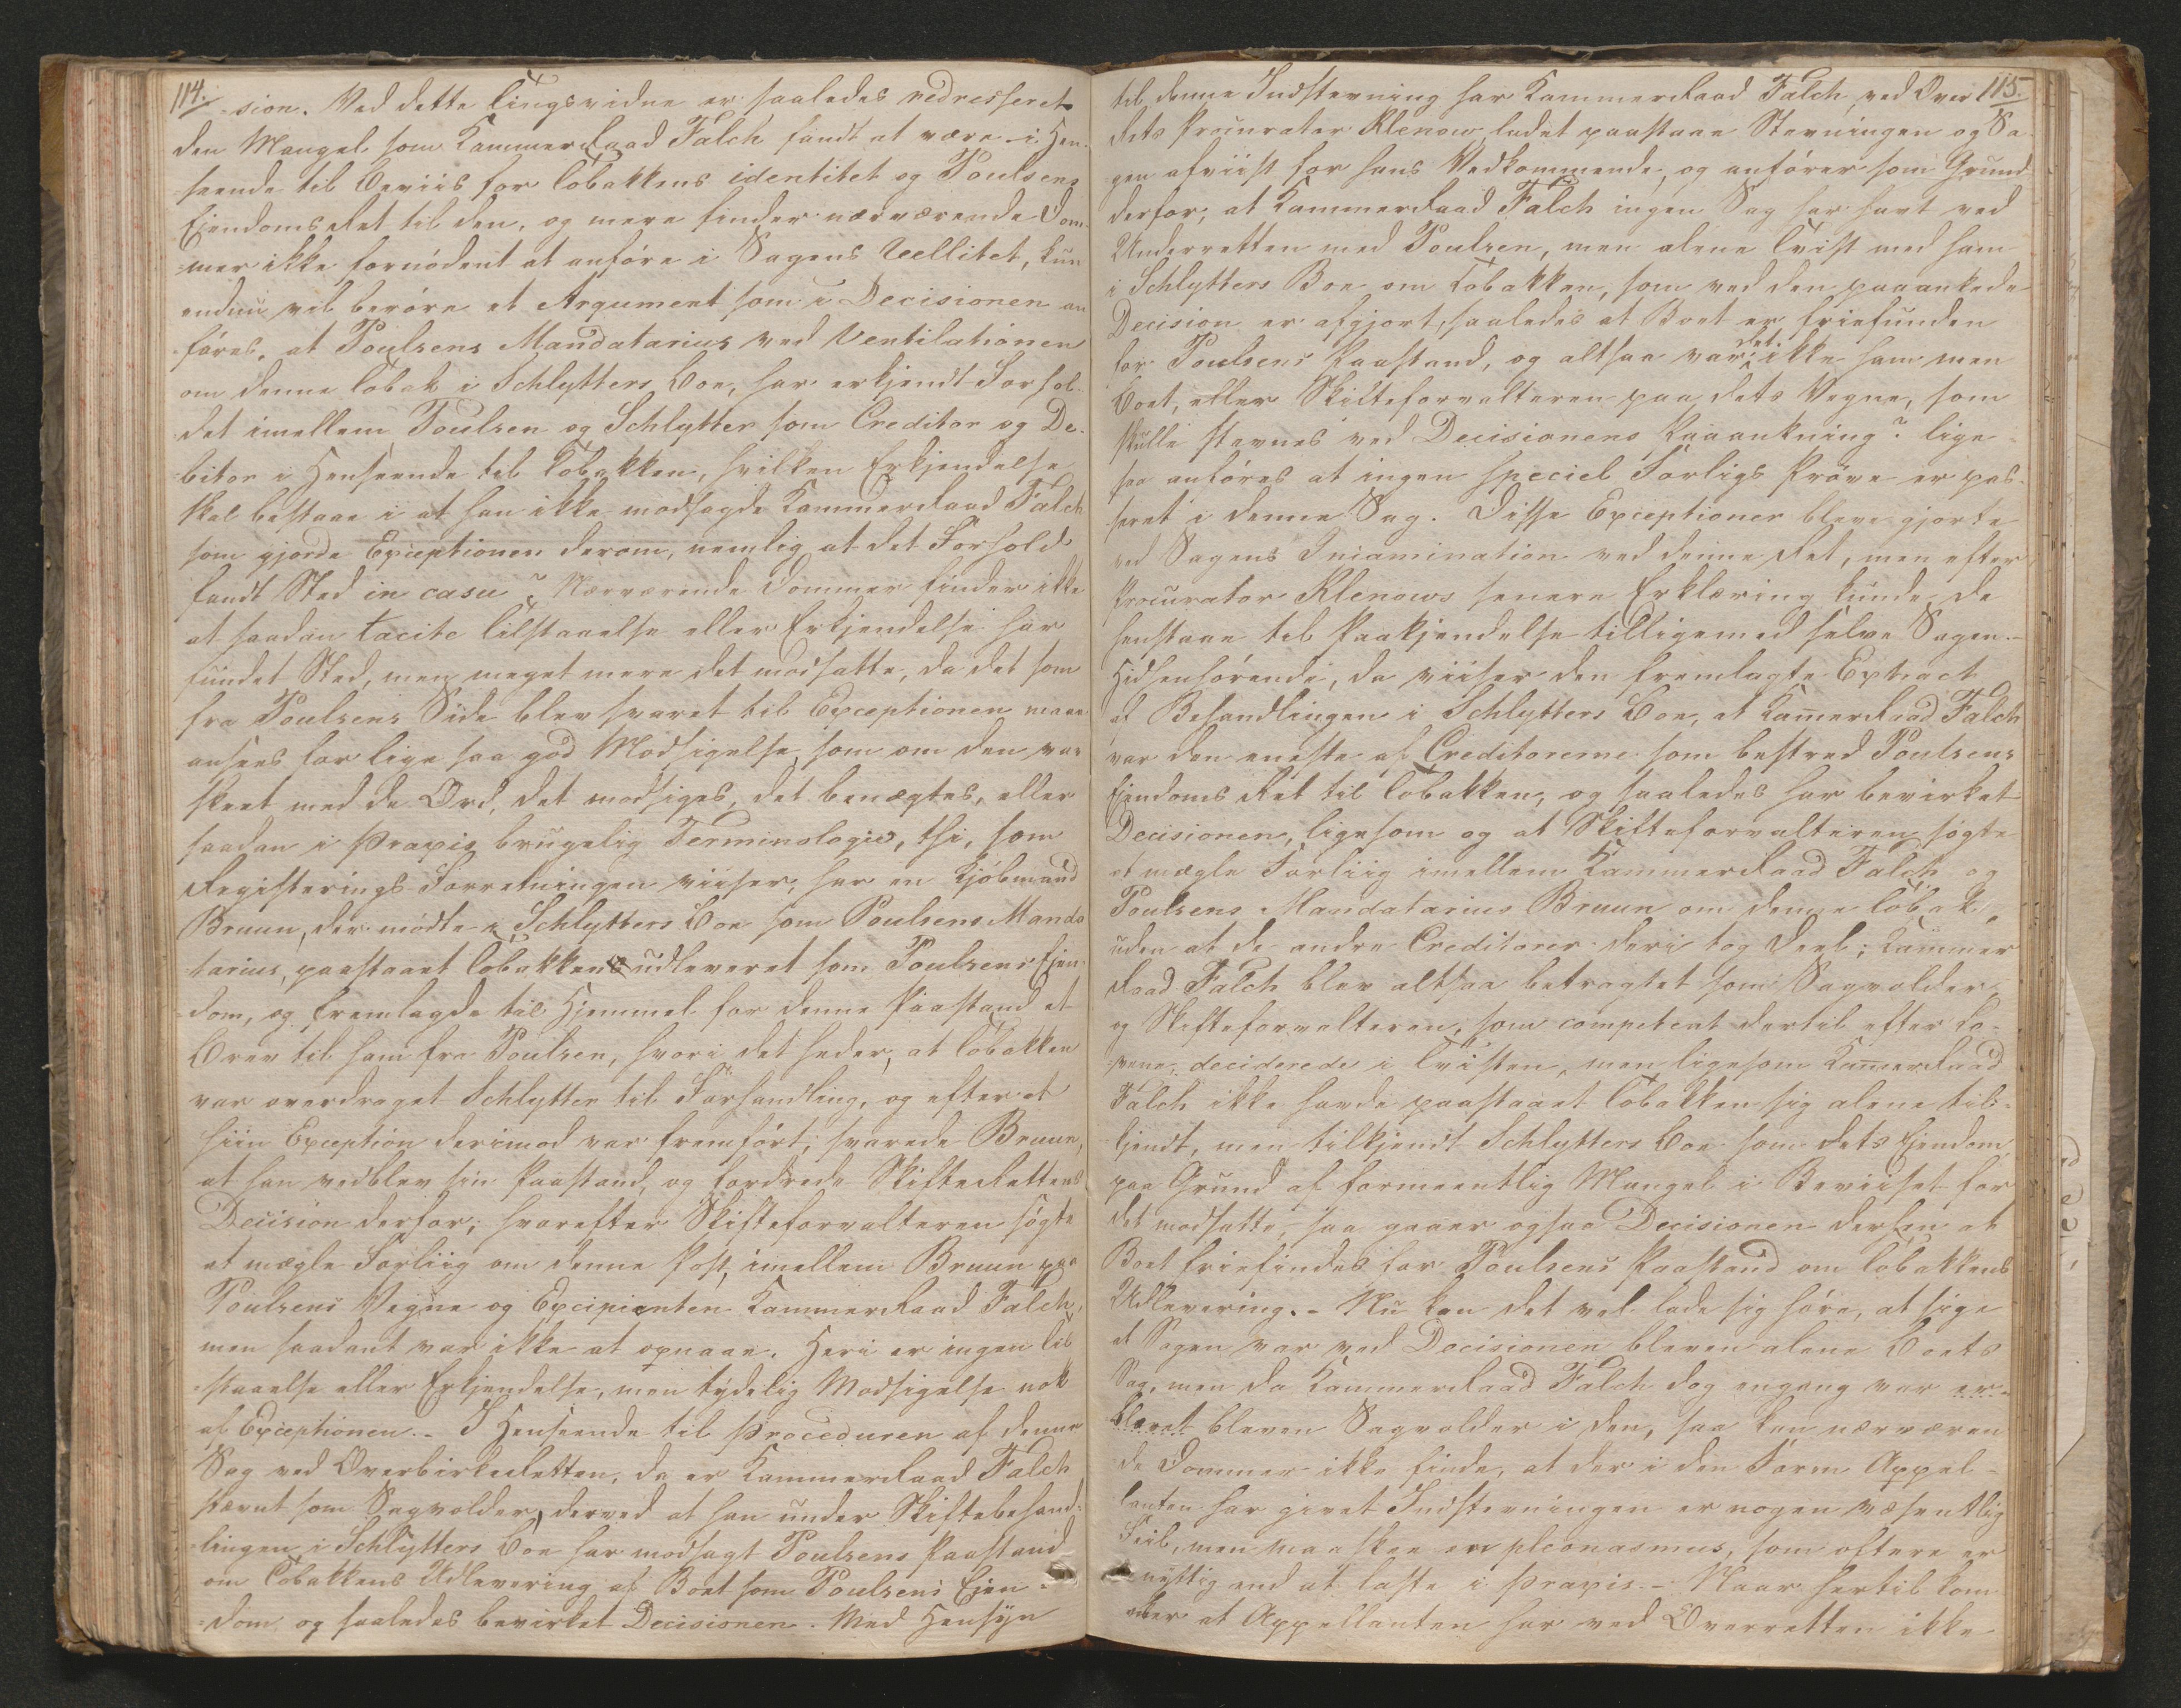 114.
-sion. Ved dette Tingsvidne er saaledes redresseret
den Mangel som KammerRaad Falch fandt at være i Hen-
seende til Beviis for Tobakkens identitet og Poulsens
EiendomsRet til den, og mere finder nærværende Dom-
mer ikke fornödent at anföre i Sagens Vellitet, kun
endnu vil beröre et Argument som i Decisionen an
föres, at Poulsens Mandatarius ved Ventilationen
om denne Tobak i Schlytters Boe, har erkjendt Forhol-
det imellem Poulsen og Schlytter som Creditor og De-
bitor i Henseende til Tobakken, hvilken Erkjendelse
skal bestaae i at han ikke modsagde KammerRaad Falch
som gjorde Exceptionen derom, nemlig at det Forhold
fandt Sted in casu? Nærværende Dommer finder ikke
at saadan tacite Tilstaaelse eller Erkjendelse har
fundet Sted, men meget mere det modsatte, da det som
fra Poulsens Side blev svaret til Exceptionen maae
ansees for lige saa god Modsigelse, som om den var
skeet med de Ord, det modsiges, det benægtes, eller
saadan i Praxis brugelig Terminologie, thi, som
Registerings-Forretningen viiser, har en Kjöbmand
Bruun, der mödte i Schlytters Boe som Poulsens Manda
tarius, paastaaet Tobakken udleveret som Poulsens Eien-
dom, og fremlagde til Hjemmel for denne Paastand et
Brev til ham fra Poulsen, hvori det heder, at Tobakken
var overdraget Schlytter til Forhandling, og efter at
hiin Exception derimod var fremfört; svarede Bruun,
at han vedblev sin Paastand, og fordrede SkifteRettens
Decision derfor; hvorefter Skifteforvalteren sögte
at mægle Forliig om denne Post, imellem Bruun paa
Poulsens Vegne og Excipienten KammerRaad Falch,
men saadant var ikke at opnaae. Heri er ingen Til
staaelse eller Erkjendelse, men tydelig Modsigelse nok
af Exceptionen. - I Henseende til Proceduren af denne
Sag ved OverbirkeRetten, da er KammerRaad Falch
stævnt som Sagvolder, derved at han under Skiftebehand-
lingen i Schlytters Boe har modsagt Poulsens Paastand
om Tobakkens Udlevering af Boet som Poulsens Eien-
dom og saaledes bevirket Decisionen. Med Hensyn
115.
til denne Indstevning har KammerRaad Falch ved Over
Rets Procurator Klenow ladet paastaae Stevningen og Sa
gen afviist for hans Vedkommende, og anförer som Grund
derfor, at KammerRaad Falch ingen Sag har havt ved
Underretten med Poulsen, men alene Tvist med ham
i Schlytters Boe om Tobakken, som ved den paaankede
Decision er afgjort, saaledes at Boet er friefunden
for Poulsens Paastand, og altsaa var det ikke ham men
Boet, eller Skifteforvalteren paa dets Vegne, som
skulle stevnes ved Decisionens Paaankning? lige-
saa anföres at ingen speciel Forligs Pröve er pas-
seret i denne Sag. Disse Exceptioner bleve gjorte
ved Sagens Incamination ved denne Ret, men efter
Procurator Klenows senere Erklæring kunde de
henstaae til Paakjendelse tilligemed selve Sagen. -
Hidhenhörende, da viiser den fremlagte Extract
af Behandlingen i Schlytters Boe, at KamerRaad Falch
var den eneste af Creditorerne som bestred Poulsens
Eiendoms Ret til Tobakken, og saaledes har bevirket
Decisionen, ligesom og at Skifteforvalteren sögte
at mægle Forliig imellem KammerRaad Falch og
Poulsens Mandatarius Bruun om denne Tobak,
uden at de andre Creditorer deri tog Deel; Kammer
Raad Falch blev altsaa betragtet som Sagvolder,
og Skifteforvalteren, som competent dertil efter Lo-
vene, deciderede i Tvisten, men ligesom KamerRaad
Falch ikke havde paastaaet Tobakken sig alene til-
kjendt, men tilkjendt Schlytters Boe som dets Eiendom,
paa Grund af formeentlig Mangel i Beviiset for
det modsatte, saa gaaer ogsaa Decisionen derhen at
Boet friefindes for Poulsens Paastand om Tobakkens
Udlevering. - Nu kan det vel lade sig höre, at sige
at Sagen var ved Decisionen bleven alene Boets
Sag, men da KammerRaad Falch dog engang var er-
klæret bleven Sagvolder i den, saa kan nærværen
de Dommer ikke finde, at der i den Form Appel-
lanten har givet Indstevningen er nogen væsentlig
Feil, men maaskee en pleonasmus, som oftere er
nyttig end at laste i Praxis. - Naar hertil kom
mer at Appellanten har ved Overretten ikke